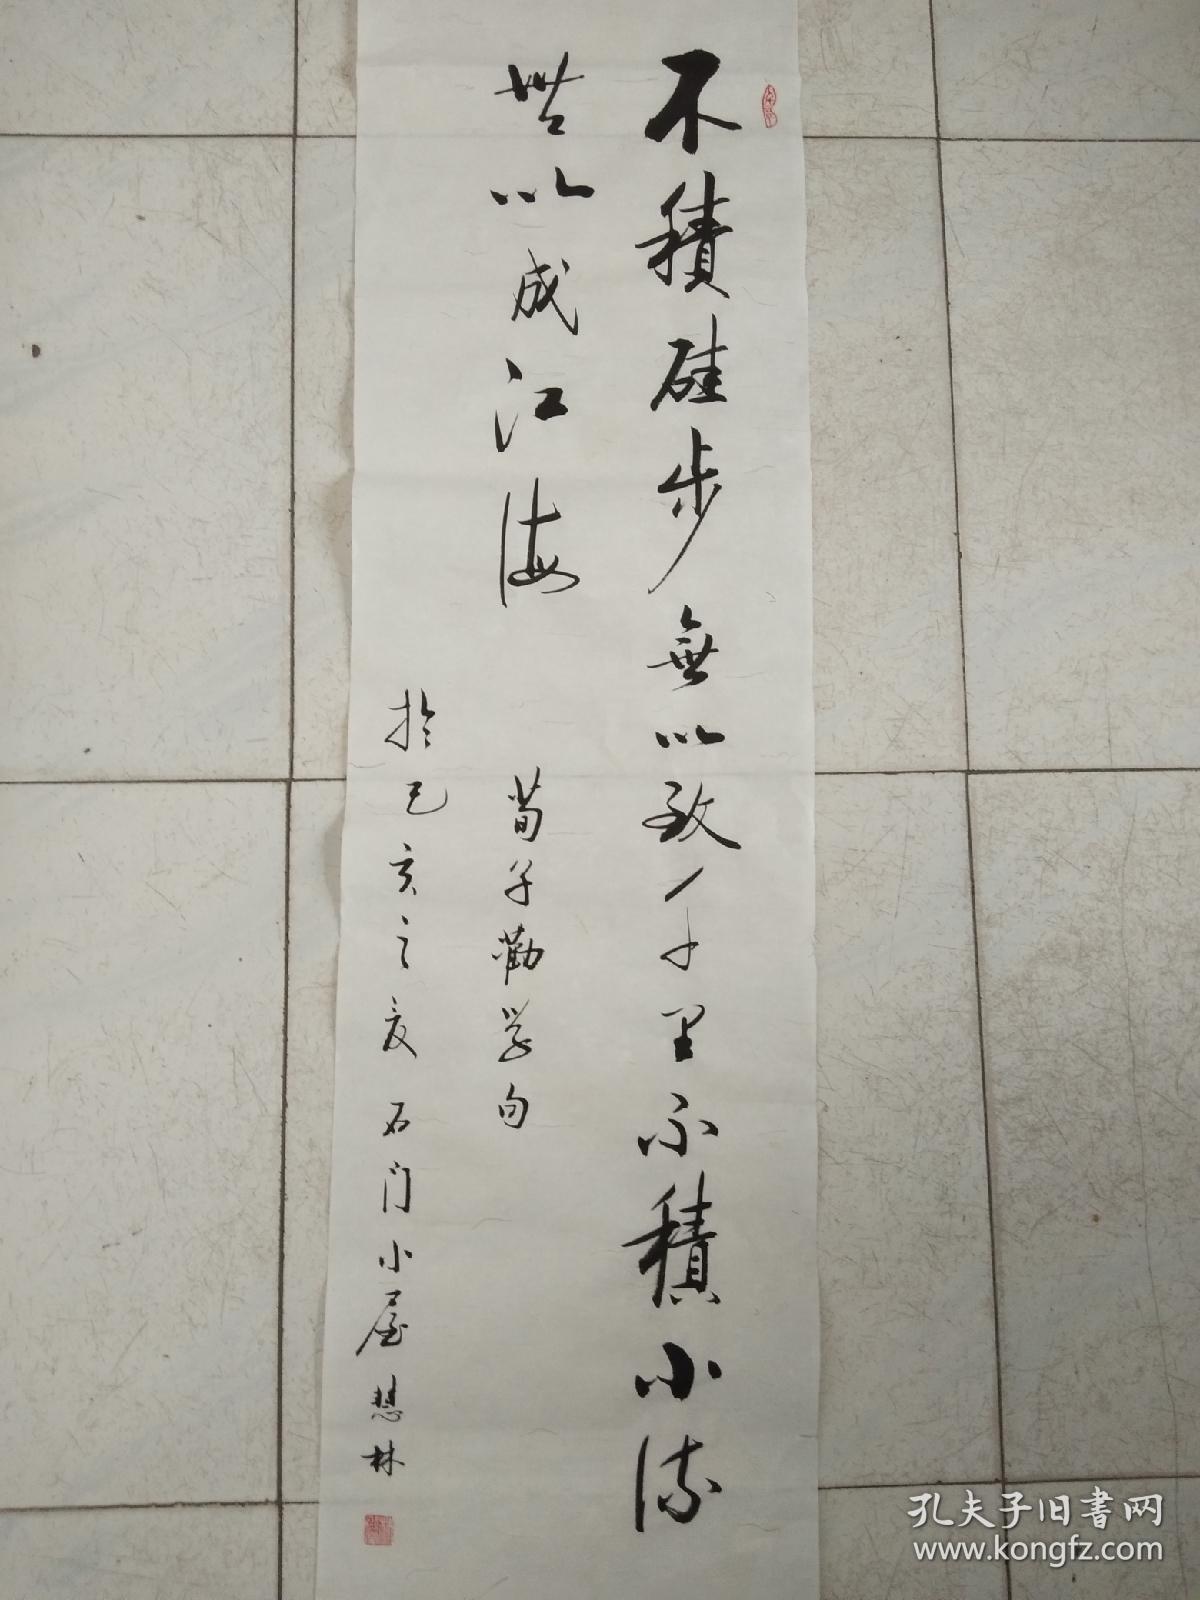 不積硅步無以致千里不積小流
無以成江海 荀子勸学句
於己亥之夏 石门小屋 慧林
孔夫子旧書网
www.kongfz.com